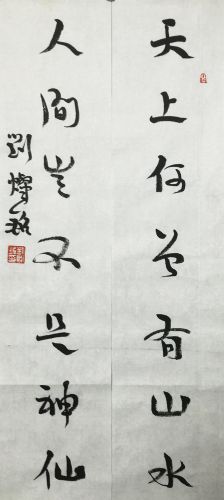 天上何曾有山水
人间岂不是神仙
刘灿铭